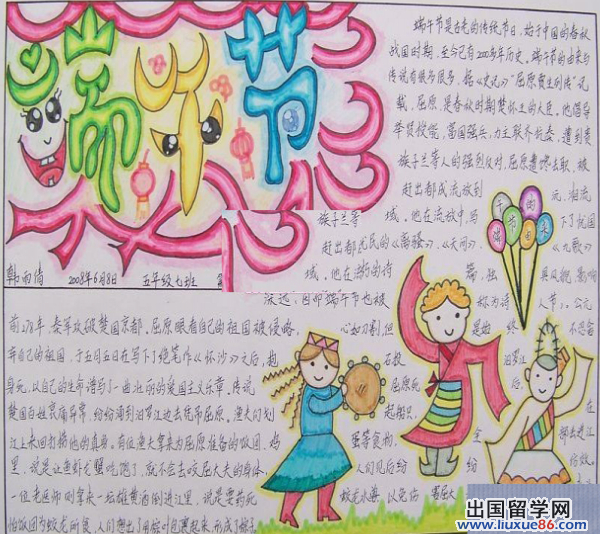 端午节
端午节是古老的传统节日,始于中国的春秋
战国时期,至今已有2000多年历史。端午节的由来与
传说有很多很多,据《史记》"屈原贾生列传"记
载,屈原,是春秋时期楚怀王的大臣。他倡导
举贤授能,富国强兵,力主联齐抗秦,遭到贵
族子兰等人的强烈反对,屈原遭馋去职,被
赶出都城,流放到
元、湘流
域,他在流放中写
下了忧国
《离骚》、《天问》、
《九歌》
韩雨倩 2008年6月8日 五年级七班
族子兰等
赶出都
域,他在
深远,因而端午节也被
称为诗
人节)。公元
前278年,秦军攻破楚国京都。屈原眼看自己的祖国被侵略,
心如刀割,但
是始
终
不忍舍
弃自己的祖国,于五月五日在写下了绝笔作《怀沙》之后,抱
石投
汨罗江
身死,以自己的生命谱写了一曲壮丽的爱国主义乐章。传说
屈原死
后,
楚国百姓哀痛异常,纷纷涌到汨罗江边去凭吊屈原。渔夫们划
起船只,
在
江上来回打捞他的真身。有位渔夫拿来为屈原准备的饭团、鸡
蛋等食物,
里,说是让鱼虾龙蟹吃饱了,就不会去咬屈大夫的身体,
人们见后纷
纷
仿效。
一位老医师则拿来一坛雄黄酒倒进江里,说是要药死
蛟龙水兽,以免伤
害屈大
怕饭团为蛟龙所食,人们想出了用粽叶包裹起来,形成了粽子
出国留学网
www.liuxue86.com